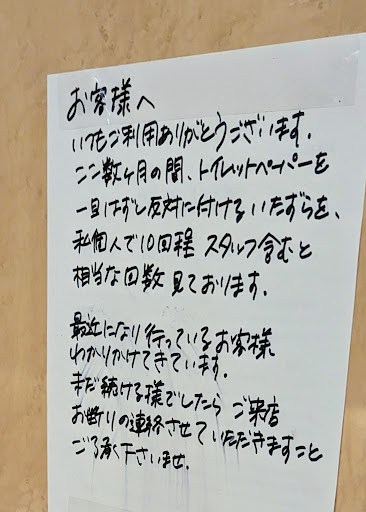 お客様へ
いつもご利用ありがとうございます.
ここ数ヶ月の間、トイレットペーパーを
一旦はずし反対に付けるいたずらを、
私個人で10回程 スタッフ含むと
相当な回数 見ております.
最近になり行っているお客様
わかりかけてきています.
まだ続ける様でしたら ご来店
お断りの連絡させていただきますこと
ご了承下さいませ.